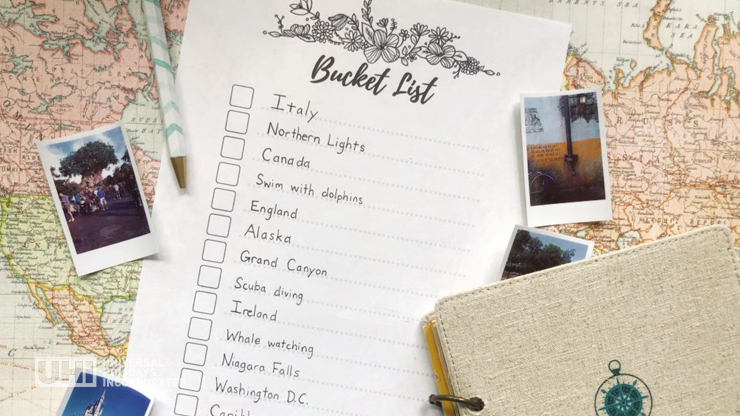 Bucket List
Italy
Northern Lights
Canada
Swim with dolphins
England
Alaska
Grand Canyon
Scuba diving
Ireland
Whale watching
Niagara Falls
Washington D.C.